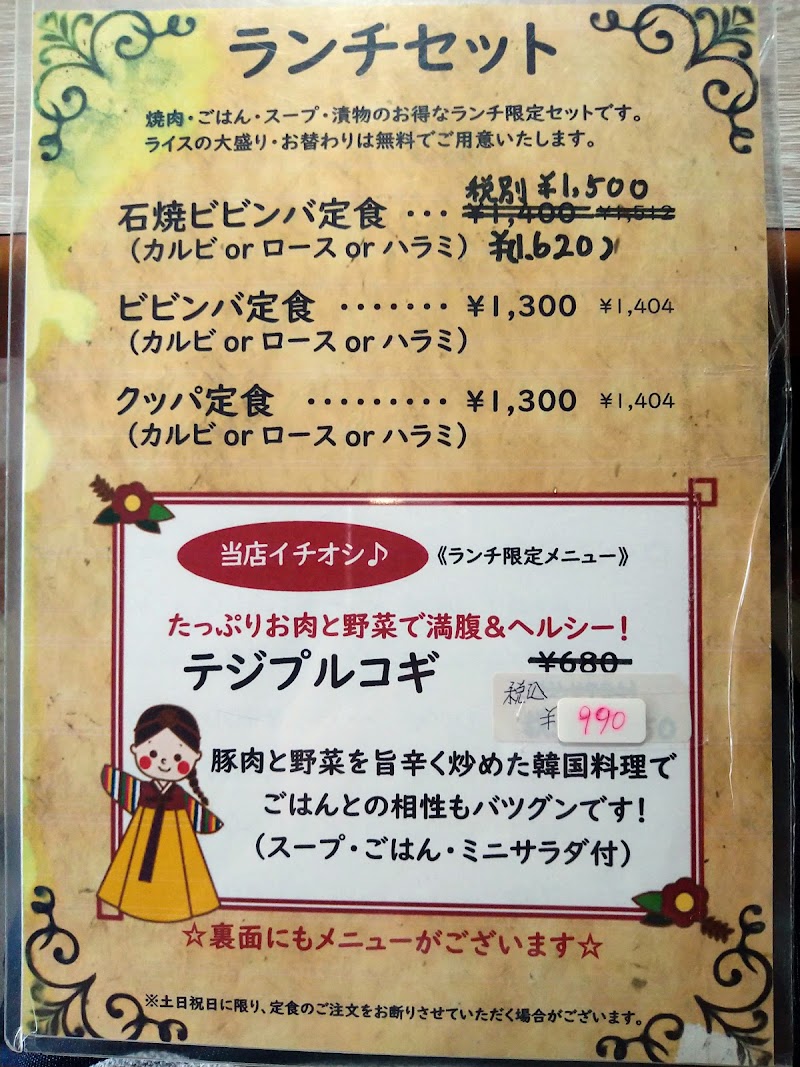 ランチセット
焼肉・ごはん・スープ・漬物のお得なランチ限定セットです。
ライスの大盛り・お替わりは無料でご用意いたします。
税別 ¥1,500
石焼ビビンバ定食 ・・・ ¥1,400 ¥1,512
(カルビ or ロース or ハラミ) ¥(1.620)
ビビンバ定食 ・・・・・・・ ¥1,300 ¥1,404
(カルビ or ロース or ハラミ)
クッパ定食 ・・・・・・・・・ ¥1,300 ¥1,404
(カルビ or ロース or ハラミ)
当店イチオシ♪ 《ランチ限定メニュー》
たっぷりお肉と野菜で満腹&ヘルシー!
テジプルコギ ¥680
税込 ¥ 990
豚肉と野菜を旨辛く炒めた韓国料理で
ごはんとの相性もバツグンです!
(スープ・ごはん・ミニサラダ付)
☆裏面にもメニューがございます☆
※土日祝日に限り、定食のご注文をお断りさせていただく場合がございます。